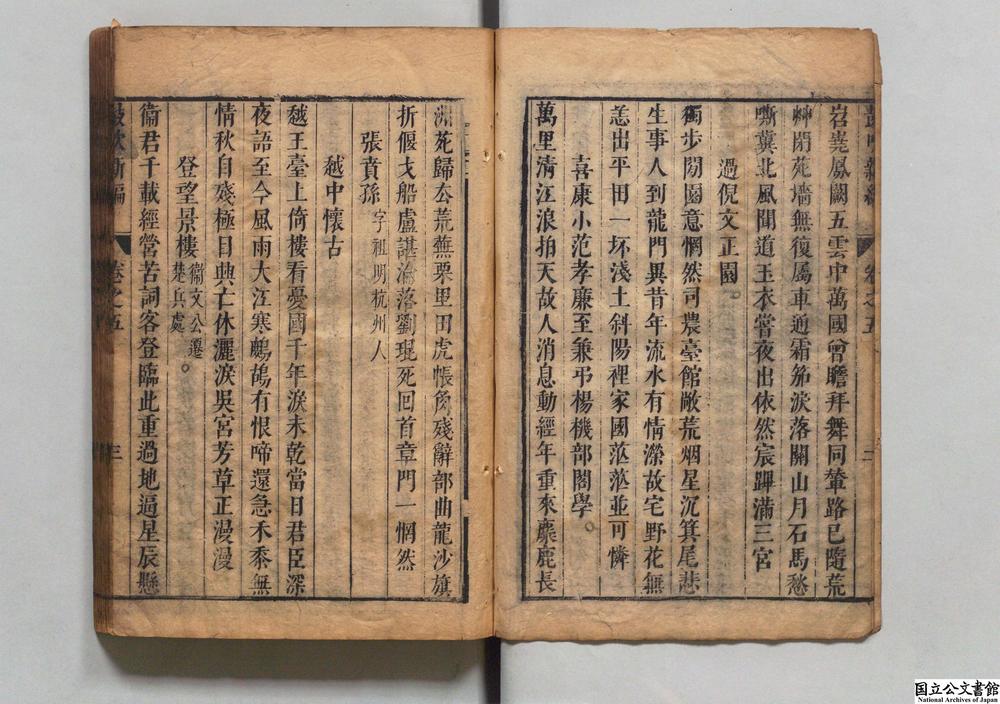 岧嶤鳳闕五雲中萬國曾瞻拜舞同輦路已隨荒
艸閉苑墻無復屬車通霜笳淚落關山月石馬愁
嘶冀北風聞道玉衣嘗夜出依然宸蹕滿三宮
過倪文正園
獨步閒園意惘然司農臺館敞荒烟星沉箕尾悲
生事人到龍門異昔年流水有情瀠故宅野花無
恙出平田一坏淺土斜陽裡家國茫茫並可憐
喜康小范孝廉至兼弔楊機部閣學
萬里清江浪拍天故人消息動經年重來麋鹿長
洲苑歸去荒蕪栗里田虎帳角殘辭部曲龍沙旗
折偃戈船盧諶淪落劉琨死回首章門一惘然
張賁孫 字祖明杭州人
越中懷古
越王臺上倚樓看憂國千年淚未乾當日君臣深
夜語至今風雨大江寒鷓鴣有恨啼還急禾黍無
情秋自殘極目興亡休灑淚吳宮芳草正漫漫
登望景樓 衞文公遷楚兵處
衞君千載經營苦詞客登臨此重過地逼星辰懸
卷之五
三
国立公文書館
National Archives of Japan